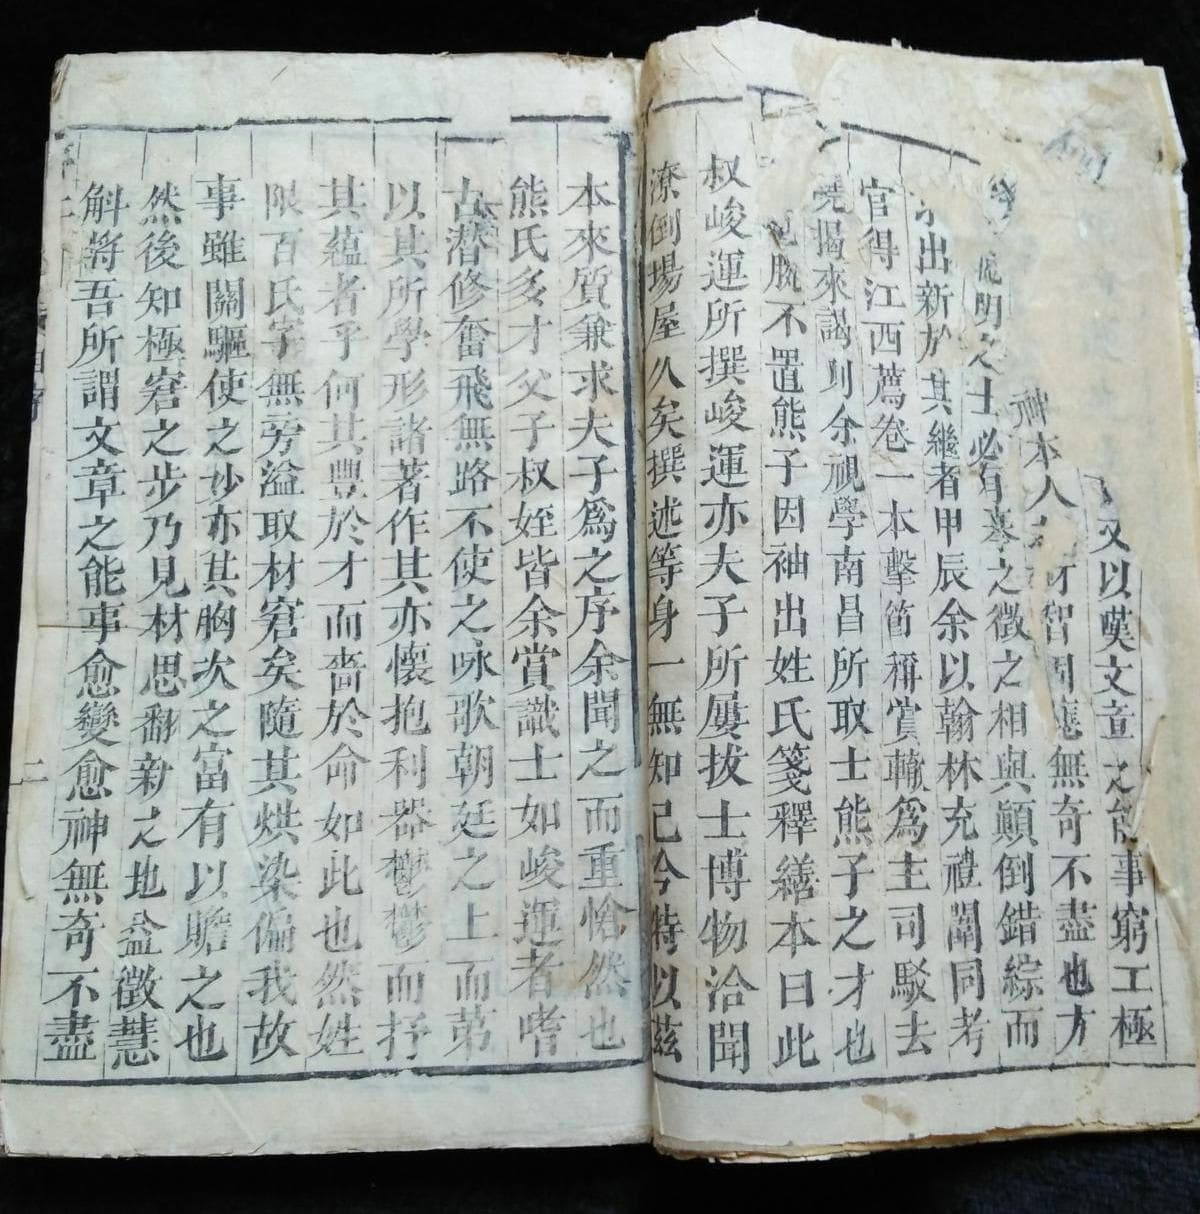 文以嘆文章之能事窮工極
神本人 材智周應無奇不盡也方
明之士必有摹之徵之相與顛倒錯綜而
出新於其繼者甲辰余以翰林充禮闈同考
官得江西薦卷一本擊節稱賞輙為主司駁去
曉揭來謁則余視學南昌所取士熊子之才也
腕不置熊子因袖出姓氏箋釋繕本曰此
叔峻運所撰峻運亦夫子所屢拔士博物洽聞
潦倒場屋久矣撰述等身一無知己今特以茲
本來質兼求夫子為之序余聞之而重愴然也
熊氏多才父子叔姪皆余賞識士如峻運者嗜
古潜修奮飛無路不使之咏歌朝廷之上而第
以其所學形諸著作其亦懷抱利器鬱鬱而抒
其蘊者乎何其豐於才而嗇於命如此也然姓
限百氏字無旁溢取材窘矣隨其烘染偏我故
事雖關驅使之妙亦其胸次之富有以贍之也
然後知極窘之步乃見材思翻新之地益徵慧
斛將吾所謂文章之能事愈變愈神無奇不盡
二